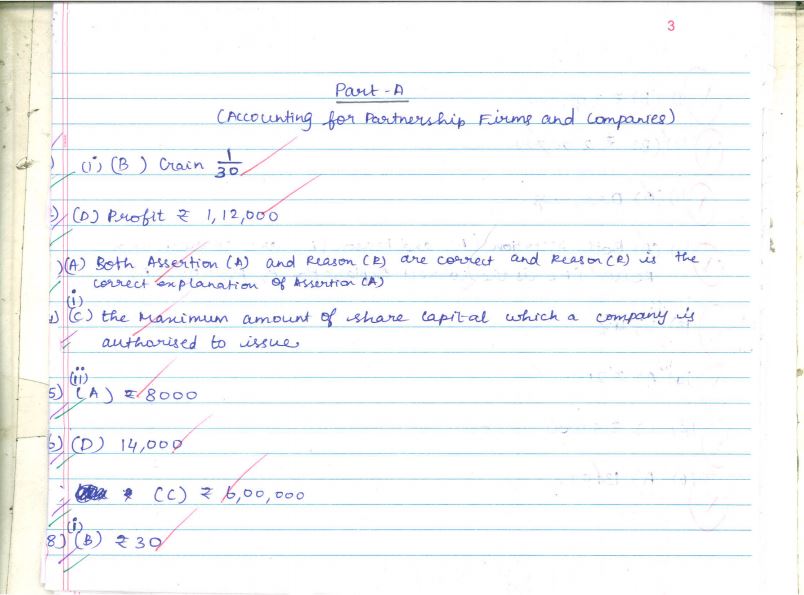 3
Part-A
(Accounting for Partnership Firms and Companies)
) (i) (B) Gain 1/30
) (D) Profit ₹ 1,12,000
) (A) Both Assertion (A) and Reason (R) are correct and Reason (R) is the
correct explanation of Assertion (A)
(i)
) (C) the Maximum amount of share capital which a company is
authorised to issue
(ii)
5) (A) ₹ 8000
6) (D) 14,000
(C) ₹ 6,00,000
(i)
8) (B) ₹ 30